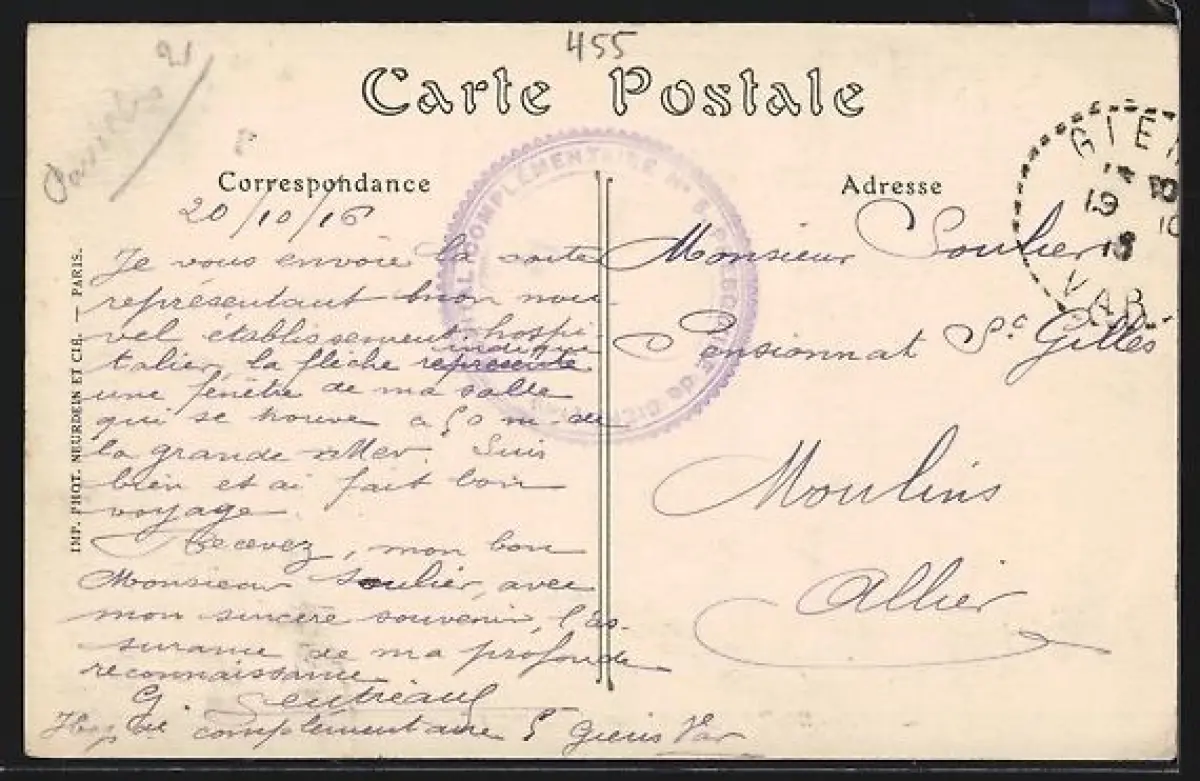 455
21
Carte Postale
Correspondance
Adresse
20/10/16
Je vous envoie la carte
représentant mon nou-
vel établissement hospi
talier, la flèche représente
indique
une fenêtre de ma salle
qui se trouve à 50 m. de
la grande Mer. Suis
bien et ai fait bon
voyage.
Recevez, mon bon
Monsieur Soulier, avec
mon sincère souvenir, l'as-
surance de ma profonde
reconnaissance
G.
Hop complementaire 5 Giens Var
Monsieur Soulier
Pensionnat St Gilles
Moulins
Allier
HOPITAL COMPLÉMENTAIRE No 5 PRESQU'ILE de GIENS
GIEN
19
10
VAR
IMP. PHOT. NEURDEIN ET CIE. — PARIS.